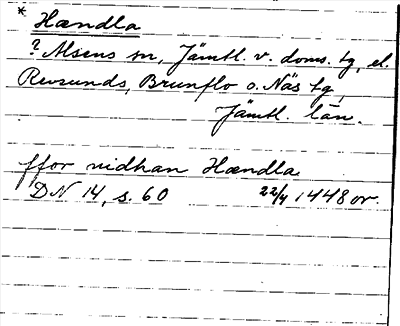 * Hændla
? Alsens sn, Jämtl. v. doms. tg, el.
Revsunds, Brunflo o. Näs tg,
Jämtl. län.
ffor nidhan Hændla
DN 14, s. 60 22/4 1448 or.